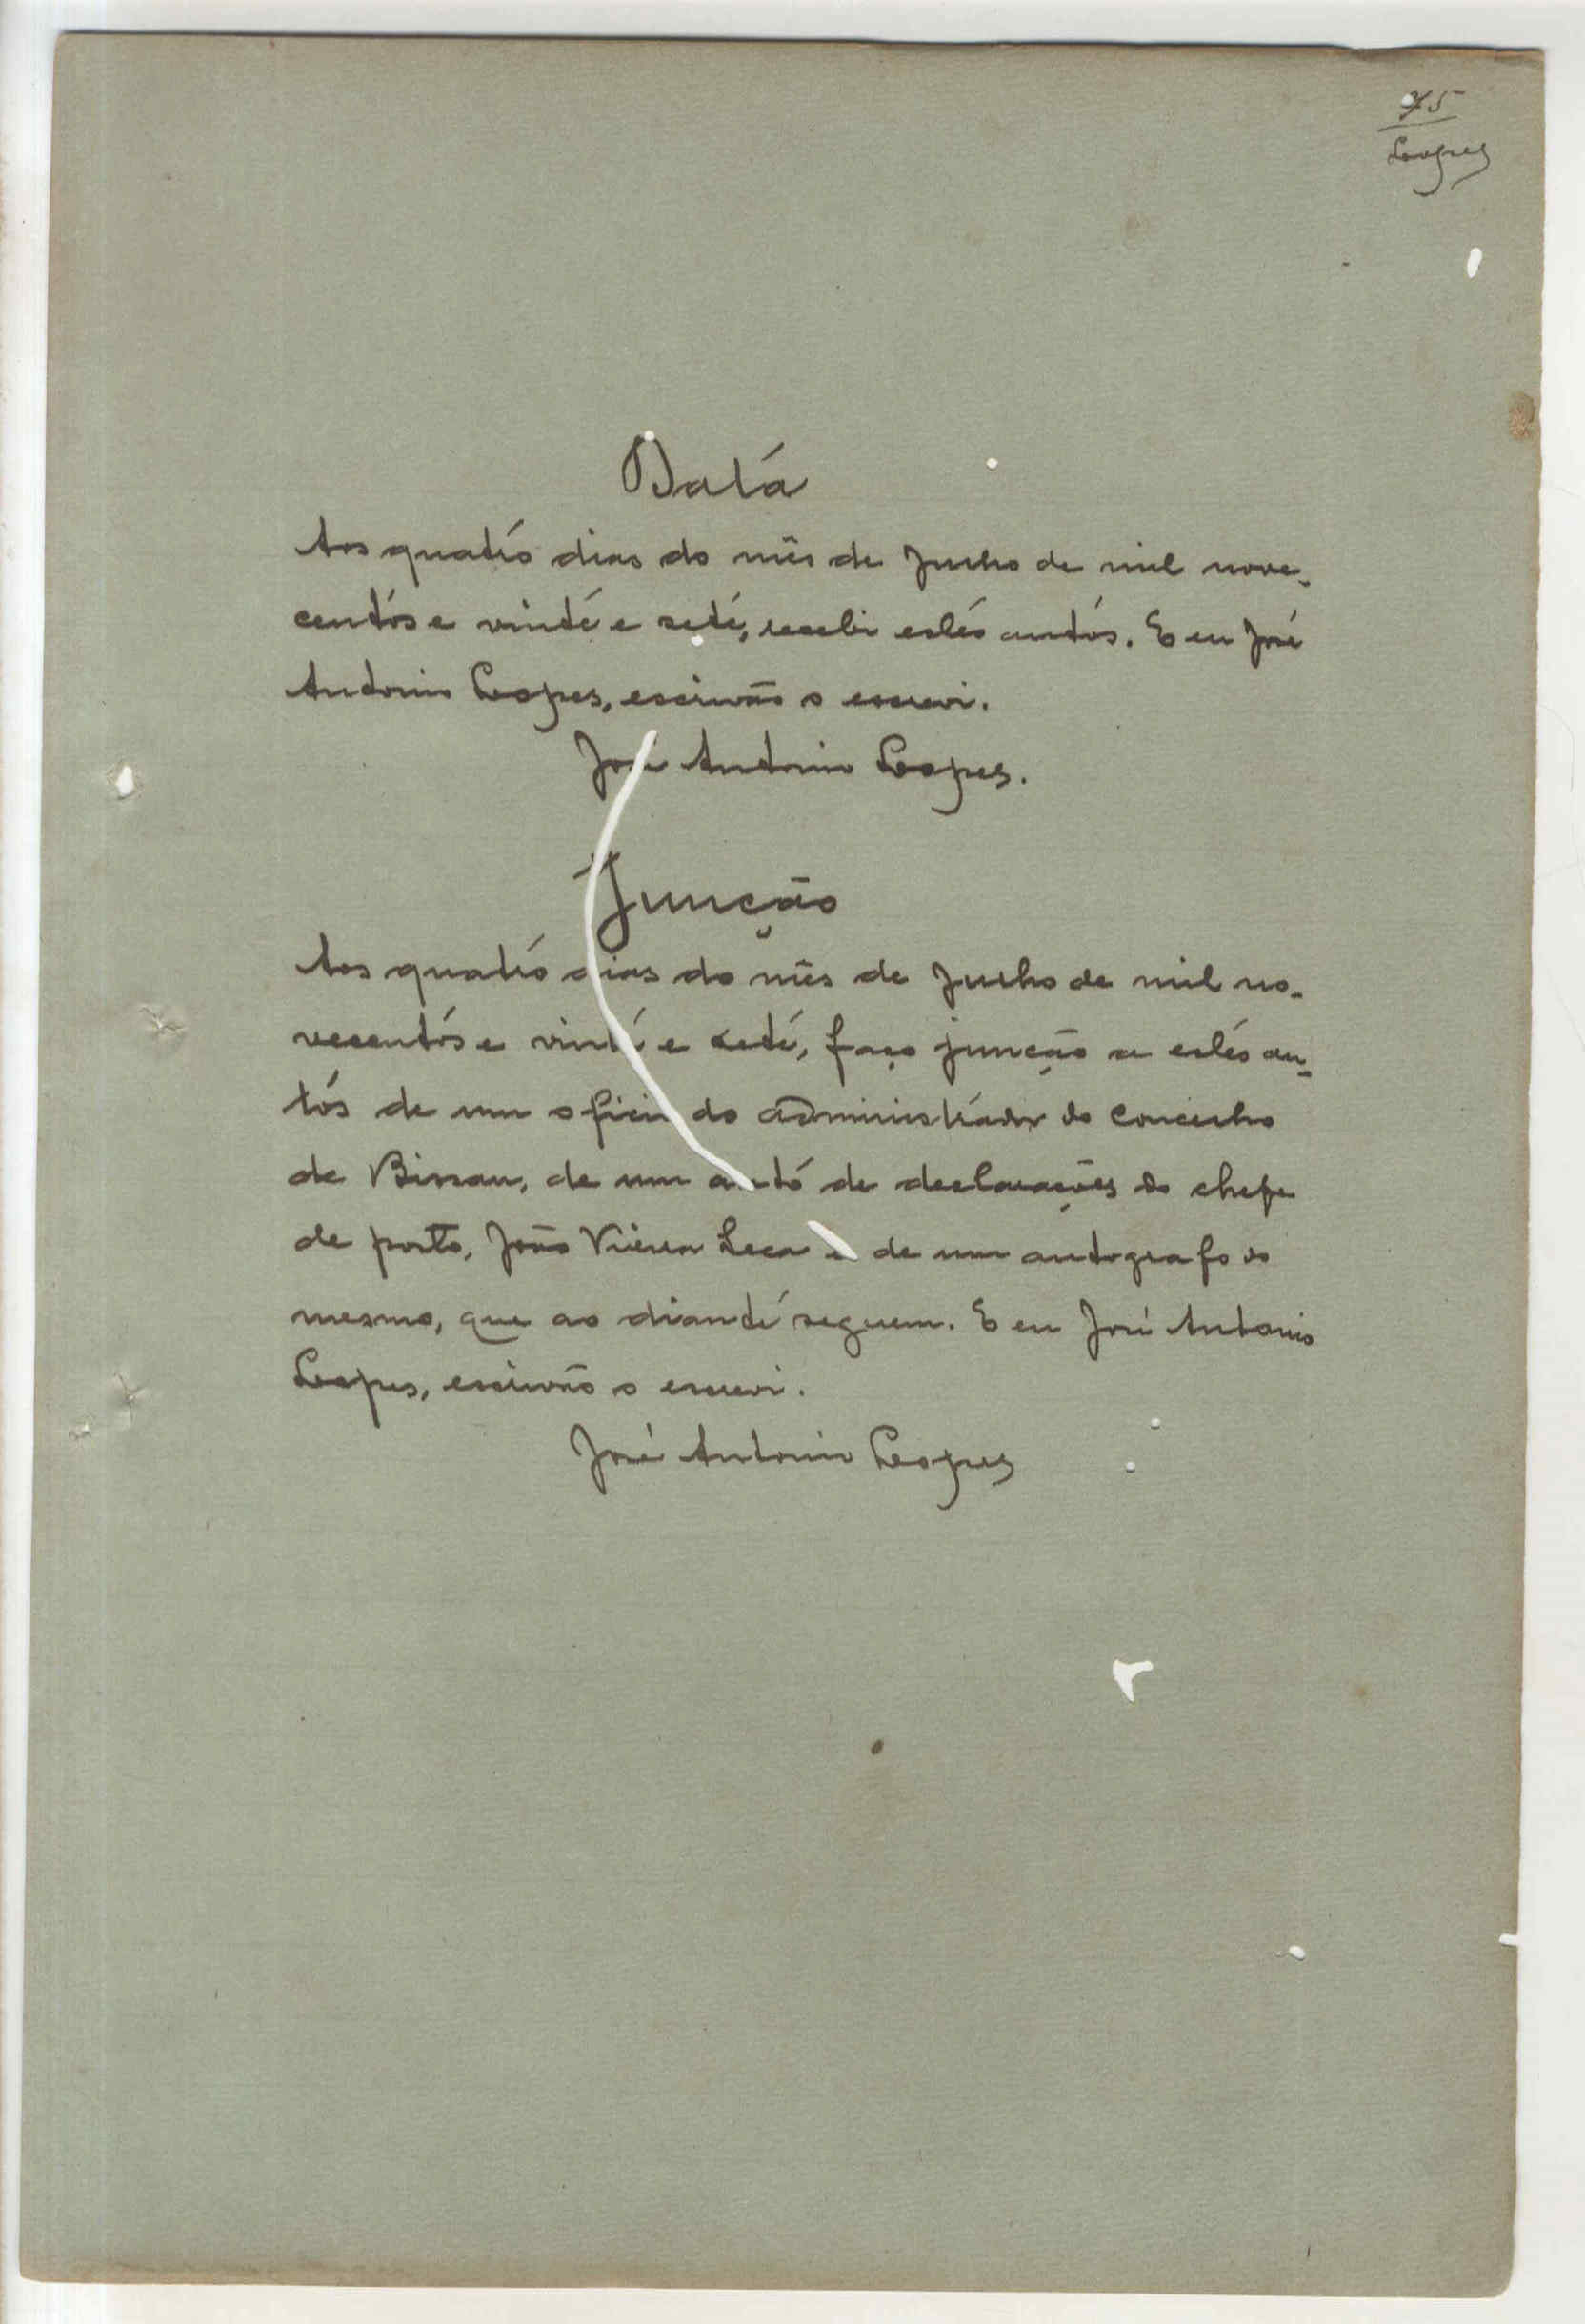 75
Lopes
Data
Aos quatro dias do mês de Julho de mil nove-
centos e vinte e sete, recebi estes autos. E eu José
Antonio Lopes, escrivão o escrevi.
José Antonio Lopes.
Junção
Aos quatro dias do mês de Julho de mil no-
vecentos e vinte e sete, faço junção a estes au-
tos de um oficio do administrador do concelho
de Bissau, de um auto de declarações do chefe
de posto, João Vieira Leca e de um autografo do
mesmo, que ao diante seguem. E eu José Antonio
Lopes, escrivão o escrevi.
José Antonio Lopes